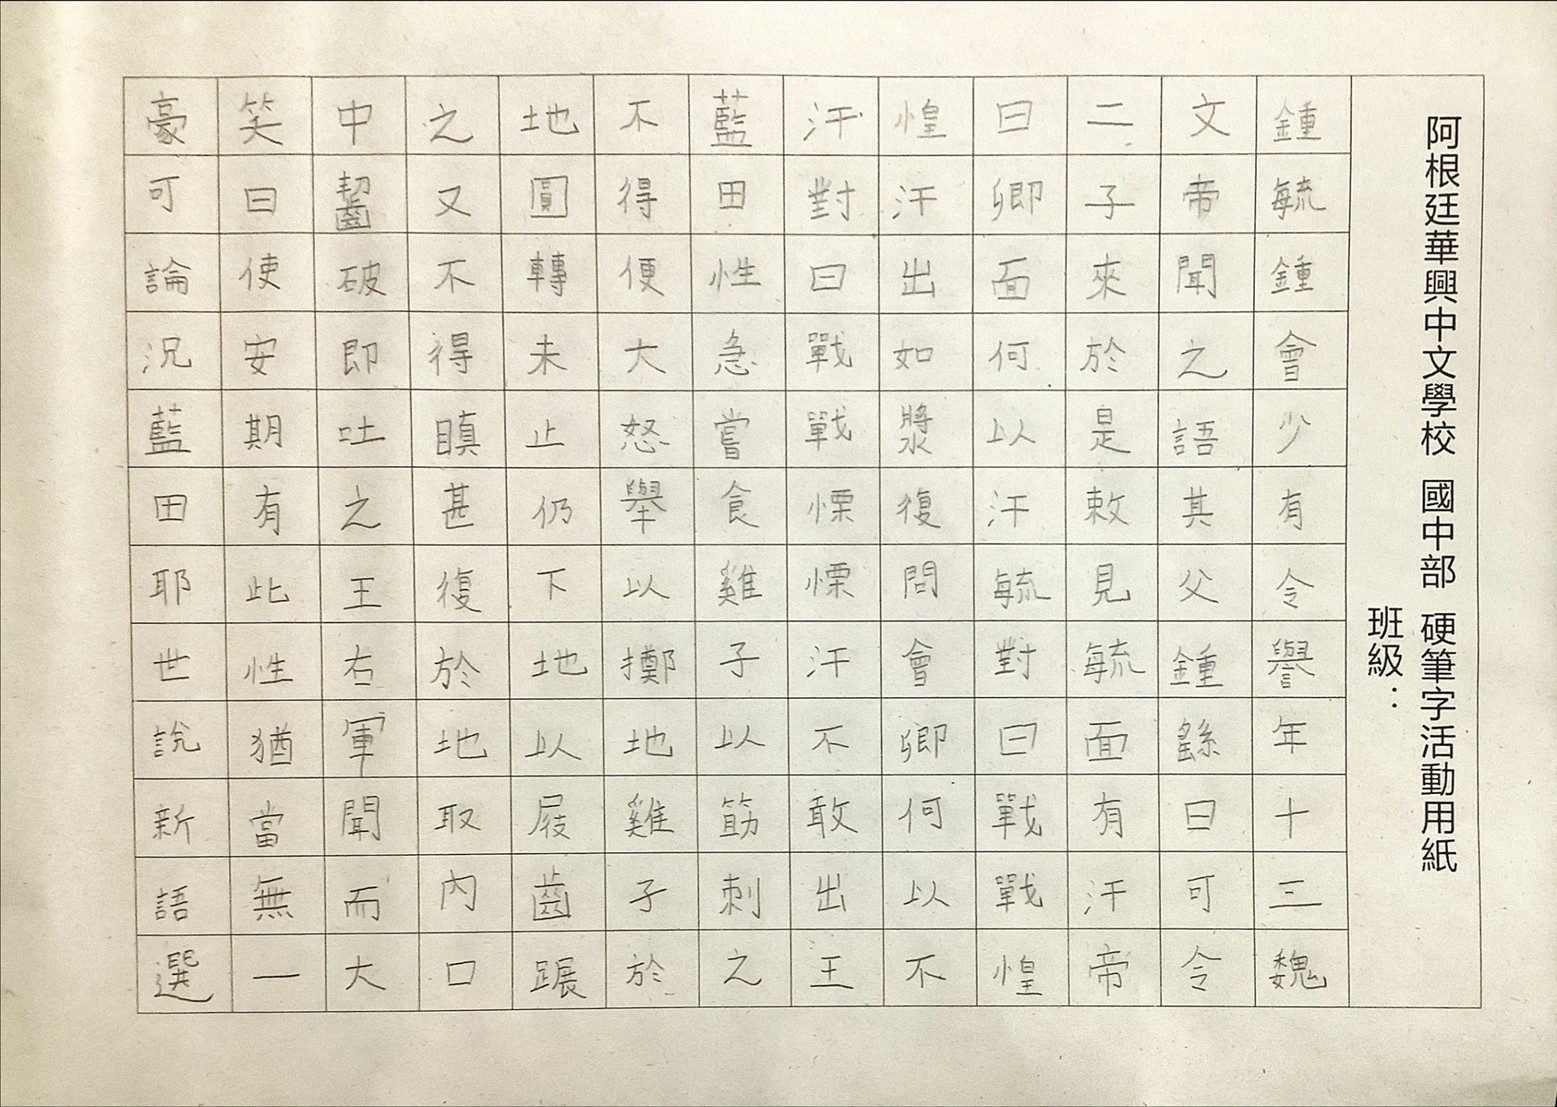 阿根廷華興中文學校 國中部 硬筆字活動用紙
班級：
鍾毓鍾會少有令譽年十三魏
文帝聞之語其父鍾繇曰可令
二子來於是敕見毓面有汗帝
曰卿面何以汗毓對曰戰戰惶
惶汗出如漿復問會卿何以不
汗對曰戰戰慄慄汗不敢出王
藍田性急嘗食雞子以筯刺之
不得便大怒舉以擲地雞子於
地圓轉未止仍下地以屐齒蹍
之又不得瞋甚復於地取內口
中齧破即吐之王右軍聞而大
笑曰使安期有此性猶當無一
豪可論況藍田耶世說新語選